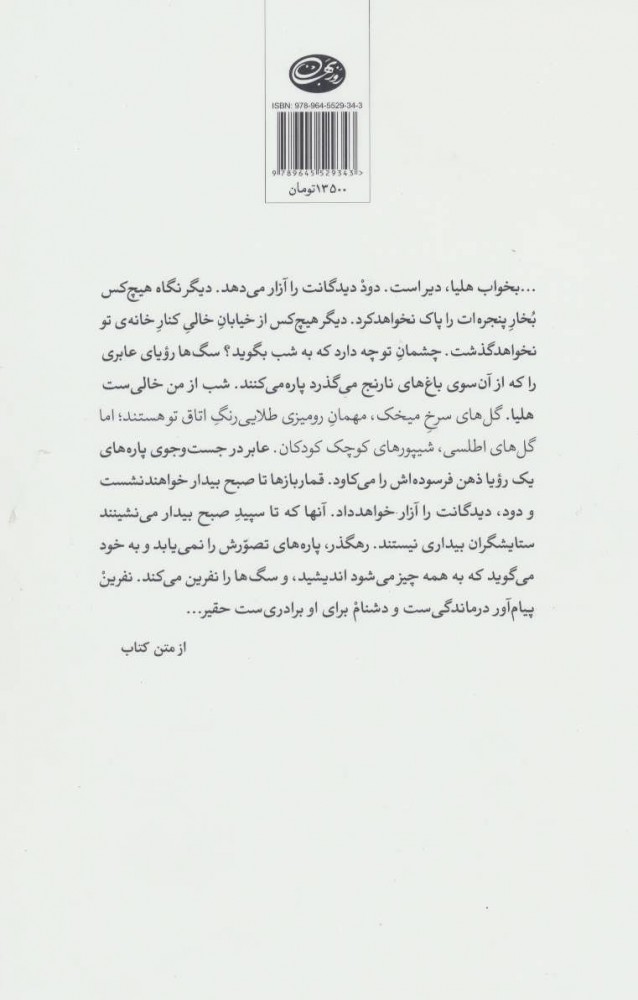 روزبهان
ISBN: 978-964-5529-34-3
9 789645 529343 >
۱۳۵۰۰تومان
...بخواب هلیا، دیر است. دودْ دیدگانت را آزار می‌دهد. دیگر نگاه هیچ‌کس
بُخارِ پنجره‌ات را پاک نخواهدکرد. دیگر هیچ‌کس از خیابانِ خالیِ کنارِ خانه‌ی تو
نخواهدگذشت. چشمانِ تو چه دارد که به شب بگوید؟ سگ‌ها رؤیای عابری
را که از آن‌سوی باغ‌های نارنج می‌گذرد پاره‌می‌کنند. شب از من خالی‌ست
هلیا. گل‌های سرخِ میخک، مهمانِ رومیزی طلایی‌رنگِ اتاق تو هستند؛ اما
گل‌های اطلسی، شیپورهای کوچک کودکان. عابر در جست‌وجوی پاره‌های
یک رؤیا ذهن فرسوده‌اش را می‌کاود. قماربازها تا صبح بیدار خواهندنشست
و دود، دیدگانت را آزار خواهدداد. آنها که تا سپیدِ صبح بیدار می‌نشینند
ستایشگران بیداری نیستند. رهگذر، پاره‌های تصوّرش را نمی‌یابد و به خود
می‌گوید که به همه چیز می‌شود اندیشید، و سگ‌ها را نفرین می‌کند. نفرینْ
پیام‌آور درماندگی‌ست و دشنامْ برای او برادری‌ست حقیر...
از متن کتاب